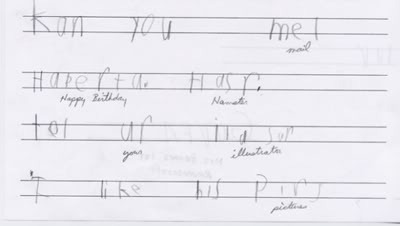 Kan you mel
mail
Haper+a. Hasr.
Happy Birthday Hamster
tel ur
your illustrator
I like his Pirs
pictures